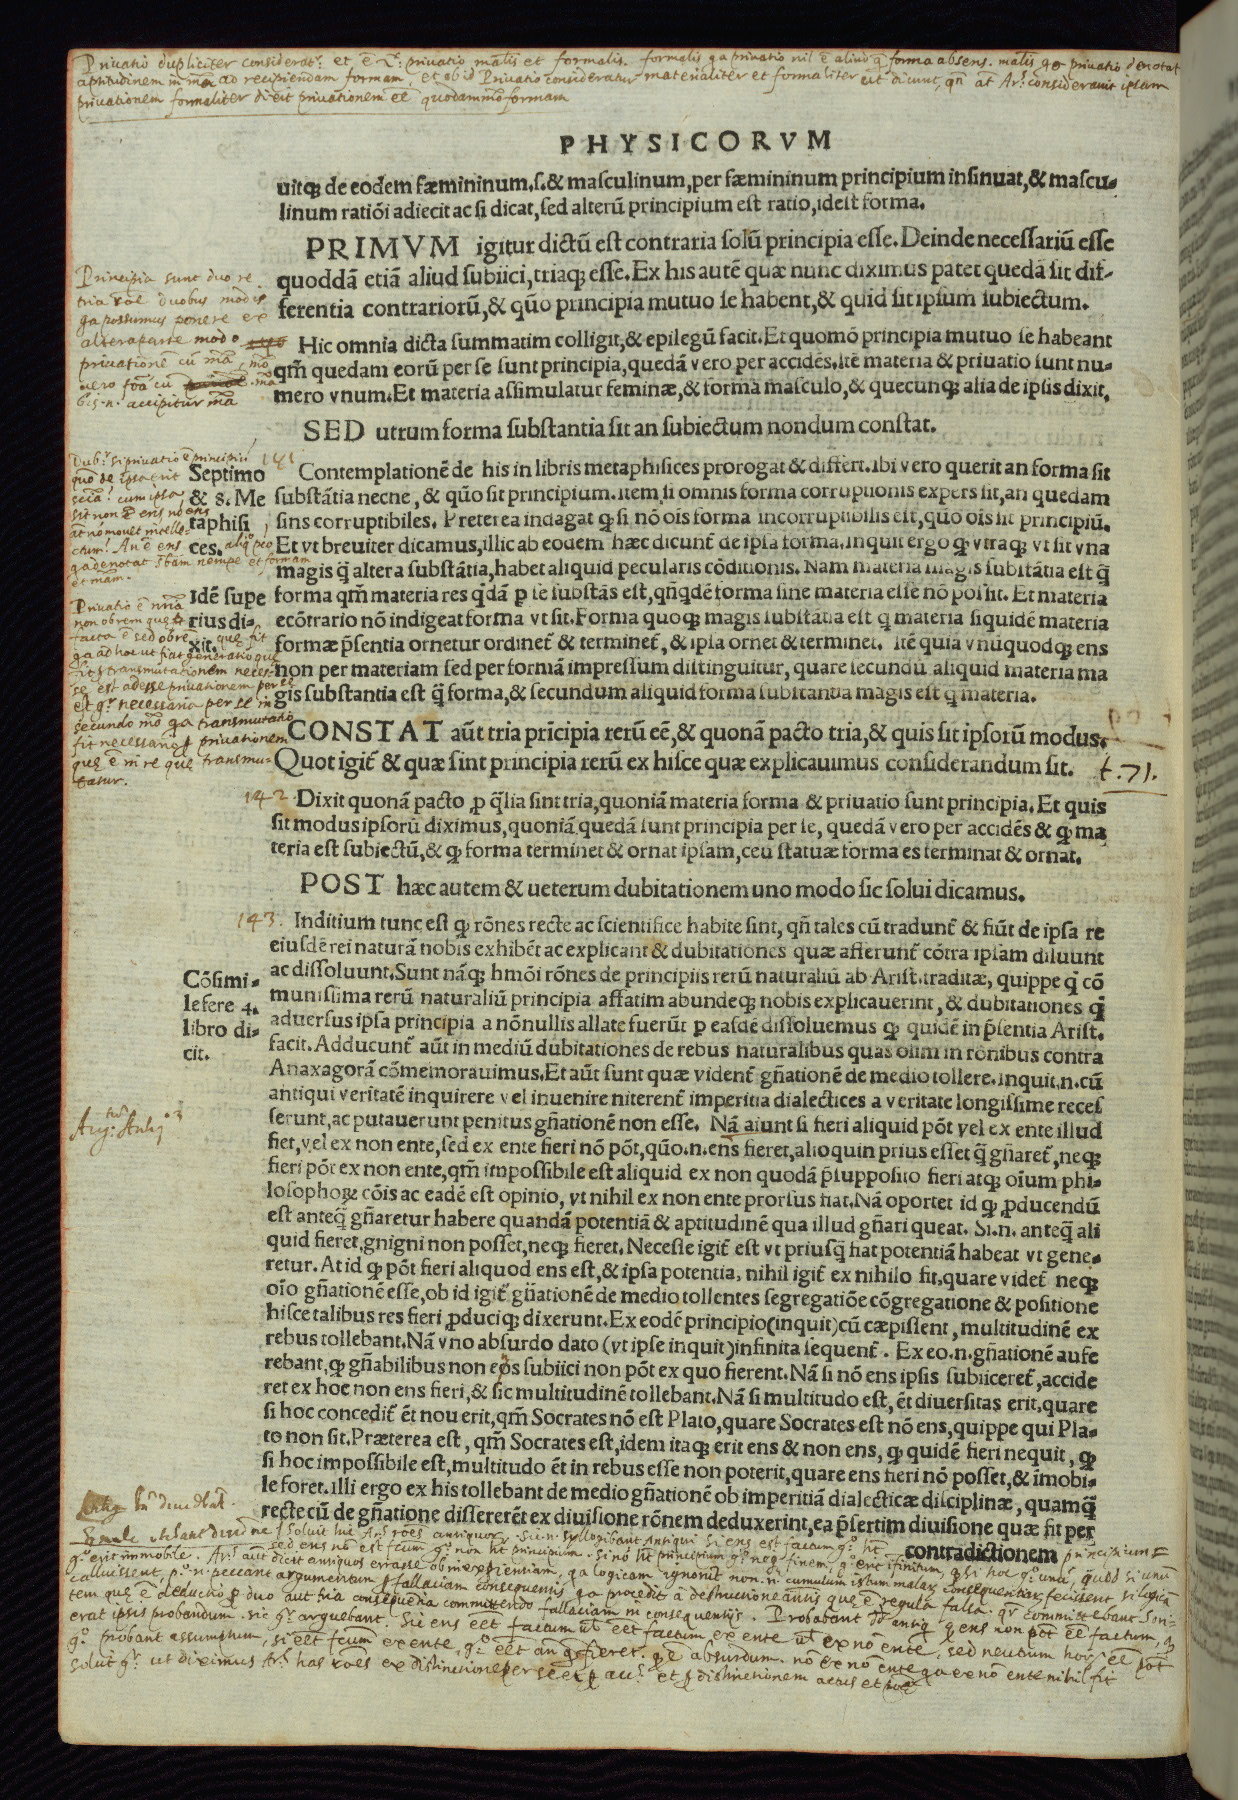 Priuatio dupliciter considerat.r et ē priuatio mālis et formalis. formalis qa priuatio nil ē aliud q̄ forma absens. malis priuatio denotat
aptitudinem in mā ad recipiendam formam, et ob id Priuatio consideratur materialiter et formaliter dicunt, qn̄ at Ar. considerauit ipsum
priuationem formaliter dicit priuationem eē quodammō formam
PHYSICORVM
uitq; de eodem fæmininum.ſ.& masculinum,per fæmininum principium insinuat,& mascu-
linum ratiōi adiecit ac si dicat,sed alterū principium est ratio,idest forma.
PRIMVM igitur dictū est contraria solū principia esse. Deinde necessariū esse
quoddā etiā aliud subiici,triaq; esse. Ex his autē quæ nunc diximus patet quedā sit dif-
ferentia contrariorū,& quō principia mutuo se habent,& quid sit ipsum subiectum.
Principia sunt duo
tria duobus modis
qa possumus ponere ex
altera parte modo
priuationē cū mā, mō
uero fōā cū mā
bis.n. accipitur mā
Hic omnia dicta summatim colligit,& epilegū facit. Et quomō principia mutuo se habeant
qm̄ quedam eorū per se sunt principia,quedā vero per accidēs. Itē materia & priuatio sunt nu-
mero vnum. Et materia assimulatur feminæ,& forma masculo,& quecunq; alia de ipsis dixit.
SED utrum forma substantia sit an subiectum nondum constat.
Dub. si priuatio ē principiū
141
Septimo
& 8. Me
taphisi
ces.
Contemplationē de his in libris metaphisices prorogat & differt. Ibi vero querit an forma sit
substātia necne, & quō sit principium. Item si omnis forma corruptionis expers sit,an quedam
sins corruptibiles. Preterea indagat q; si nō ois forma incorruptibilis est,quō ois sit principiū.
Et vt breuiter dicamus,illic ab eodem hæc dicunt̄ de ipsa forma. Inquit ergo q; vtraq; vt sit vna
magis q̄ altera substātia,habet aliquid pecularis cōditionis. Nam materia magis substātia est q̄
Priuatio ē
non ob rem que
facta ē sed ob re que fit
qa ad hoc ut fiat generatio que
fit transmutationem neces-
se est adesse priuationem per se
et necessaria per se in
secundo mō qa transmutatio
fit necessario priuationem
que ē in re que transmu-
tatur.
Idē supe
rius di-
xit.
forma qm̄ materia res q̄dā p se substās est,qn̄qdē forma sine materia esse nō pōssit. Et materia
ecōtrario nō indigeat forma vt sit. Forma quoq; magis substātia est q̄ materia siquidē materia
formæ p̄sentia ornetur ordinet̄ & terminet̄, & ipsa ornet & terminet. Itē quia vnūquodq; ens
non per materiam sed per formā impressum distinguitur, quare secundū aliquid materia ma
gis substantia est q̄ forma,& secundum aliquid forma substantia magis est q̄ materia.
CONSTAT aūt tria pricipia rerū eē,& quonā pacto tria,& quis sit ipsorū modus.
Quot igit̄ & quæ sint principia rerū ex hisce quæ explicauimus considerandum sit.
t.71.
142 Dixit quonā pacto p q̄lia sint tria,quoniā materia forma & priuatio sunt principia. Et quis
sit modus ipsorū diximus,quoniā quedā sunt principia per se, quedā vero per accidēs & q; ma
teria est subiectū,& q; forma terminet & ornat ipsam,ceu statuæ forma es terminat & ornat.
POST hæc autem & ueterum dubitationem uno modo sic solui dicamus.
143. Inditium tunc est q; rōnes recte ac scientifice habite sint, qn̄ tales cū tradunt̄ & fiūt de ipsa re
eiusdē rei naturā nobis exhibēt ac explicant & dubitationes quæ afferunt̄ cōtra ipsam diluunt
Cōsimi-
lefere 4.
libro di-
cit.
ac dissoluunt. Sunt nāq; hmōi rōnes de principiis rerū naturaliū ab Arist. traditæ, quippe q̄ cō
munissima rerū naturaliū principia affatim abundeq; nobis explicauerint, & dubitationes q̄
aduersus ipsa principia a nōnullis allate fuerūt p easdē dissoluemus q; quidē in p̄sentia Arist.
facit. Adducunt̄ aūt in mediū dubitationes de rebus naturalibus quas olim in rōnibus contra
Anaxagorā cōmemorauimus. Et aūt sunt quæ vident̄ gn̄ationē de medio tollere. inquit.n.cū
antiqui veritatē inquirere vel inuenire niterent̄ imperitia dialectices a veritate longissime reces
serunt,ac putauerunt penitus gn̄ationē non esse. Nā aiunt si fieri aliquid pōt vel ex ente illud
fiet,vel ex non ente,sed ex ente fieri nō pōt,quō.n.ens fieret,alioquin prius esset q̄ gn̄aret̄,neq;
fieri pōt ex non ente,qm̄ impossibile est aliquid ex non quodā p̄supposito fieri atq; oīum phi-
losophoꝝ cōis ac eadē est opinio, vt nihil ex non ente prorsus fiat. Nā oportet id q; pducendū
est anteq̄ gn̄aretur habere quandā potentiā & aptitudinē qua illud gn̄ari queat. Si.n. anteq̄ ali
quid fieret,gnigni non posset,neq; fieret. Necesse igit̄ est vt priusq̄ fiat potentiā habeat vt gene-
retur. At id q; pōt fieri aliquod ens est,& ipsa potentia, nihil igit̄ ex nihilo fit,quare videt̄ neq;
oīo gn̄ationē esse,ob id igit̄ gn̄ationē de medio tollentes segregatiōe cōgregatione & positione
hisce talibus res fieri pduciq; dixerunt. Ex eodē principio(inquit)cū cæpissent, multitudinē ex
rebus tollebant. Nā vno absurdo dato (vt ipse inquit)infinita sequent̄. Ex eo.n.gn̄ationē aufe
rebant,q; gn̄abilibus non eōs subiici non pōt ex quo fierent. Nā si nō ens ipsis subiiceret̄,accide
ret ex hoc non ens fieri,& sic multitudinē tollebant. Nā si multitudo est, ēt diuersitas erit,quare
si hoc concedit̄ ēt nou erit,qm̄ Socrates nō est Plato,quare Socrates est nō ens,quippe qui Pla-
to non sit. Præterea est, qm̄ Socrates est,idem itaq; erit ens & non ens, q; quidē fieri nequit, q;
si hoc impossibile est,multitudo ēt in rebus esse non poterit,quare ens fieri nō posset,& īmobi-
le foret. Illi ergo ex his tollebant de medio gn̄ationē ob imperitiā dialecticæ disciplinæ, quamq̄
recte cū de gn̄atione dissererēt ex diuisione rōnem deduxerint,ea p̄sertim diuisione quæ fit per
contradictionem
Arg. Antiq
soluit hic Ar. rōes antiquorꝝ. si.n. syllogibant Antiqui si ens est factum
sed ens nō est fcum g. non ht principium. si nō ht principium g. neq finem, g. erit ifinitum,
g. erit immobile. Ar. aūt dicit antiquos errasse ob inexperientiam, qa logicam ignorūt
calluissent, peccant argumentum p fallaciam consequentis qa procedit à destructione antis que ē regula falsa.
tem que ē deductio p duo aut tria consequētia committendo fallaciam in consequentijs. Probabant antiq q ens non pōt eē factum,
erat ipsis probandum. sic g. arguebant. Si ens eēt factum ul eēt factum ex ente ul ex nō ente, sed neutrum
g. probant assumptum, si eēt fcum ex ente, g. eēt an q̄ fieret. q ē absurdum. nō ex nō ente qa ex nō ente nihil fit
soluit g. ut diximus Ar. has rōes ex distinctione per se et p acc. et p distinctionem actus et